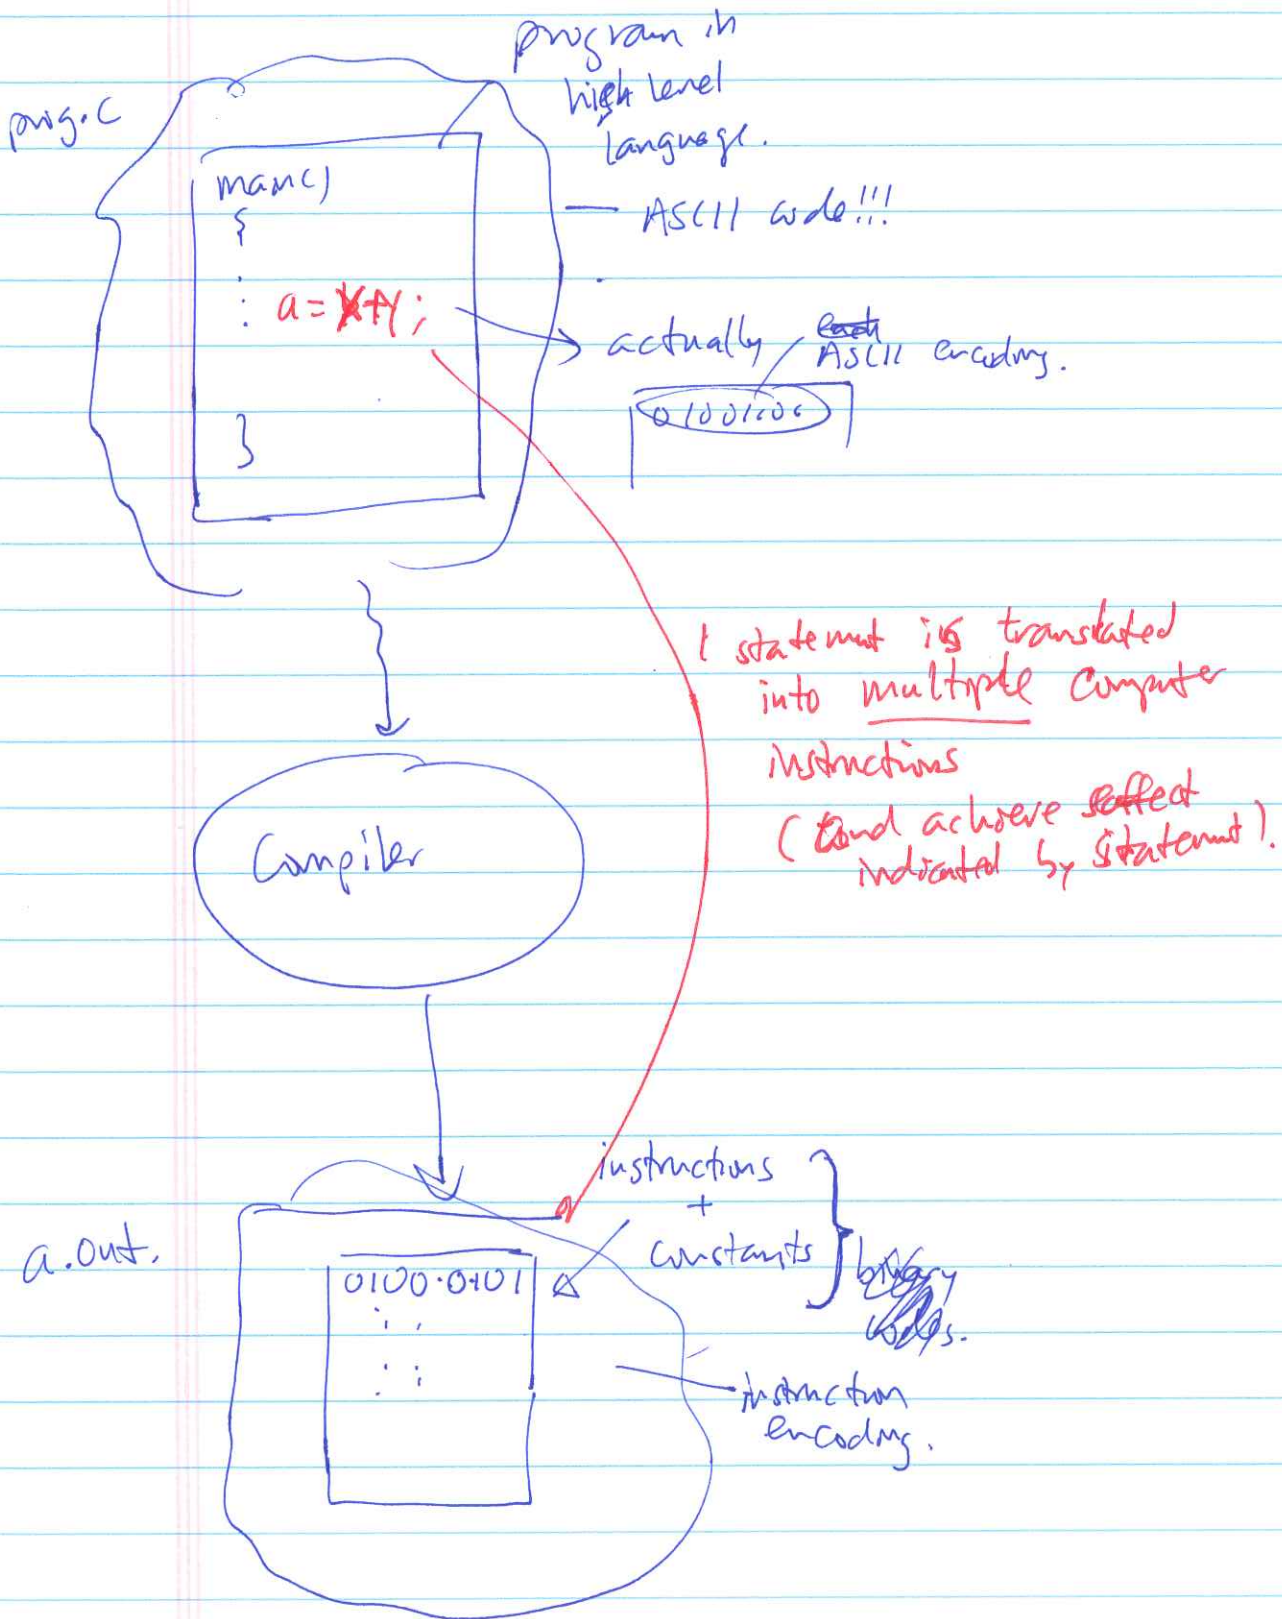 program in
high level
language.
prog.c
main()
{
:
: a = x+y;
}
— ASCII code!!!
actually
ASCII encoding.
1 statement is translated
into multiple computer
instructions
(and achieve effect
indicated by statement).
Compiler
instructions
+
constants
}
a.out.
instruction
encoding.